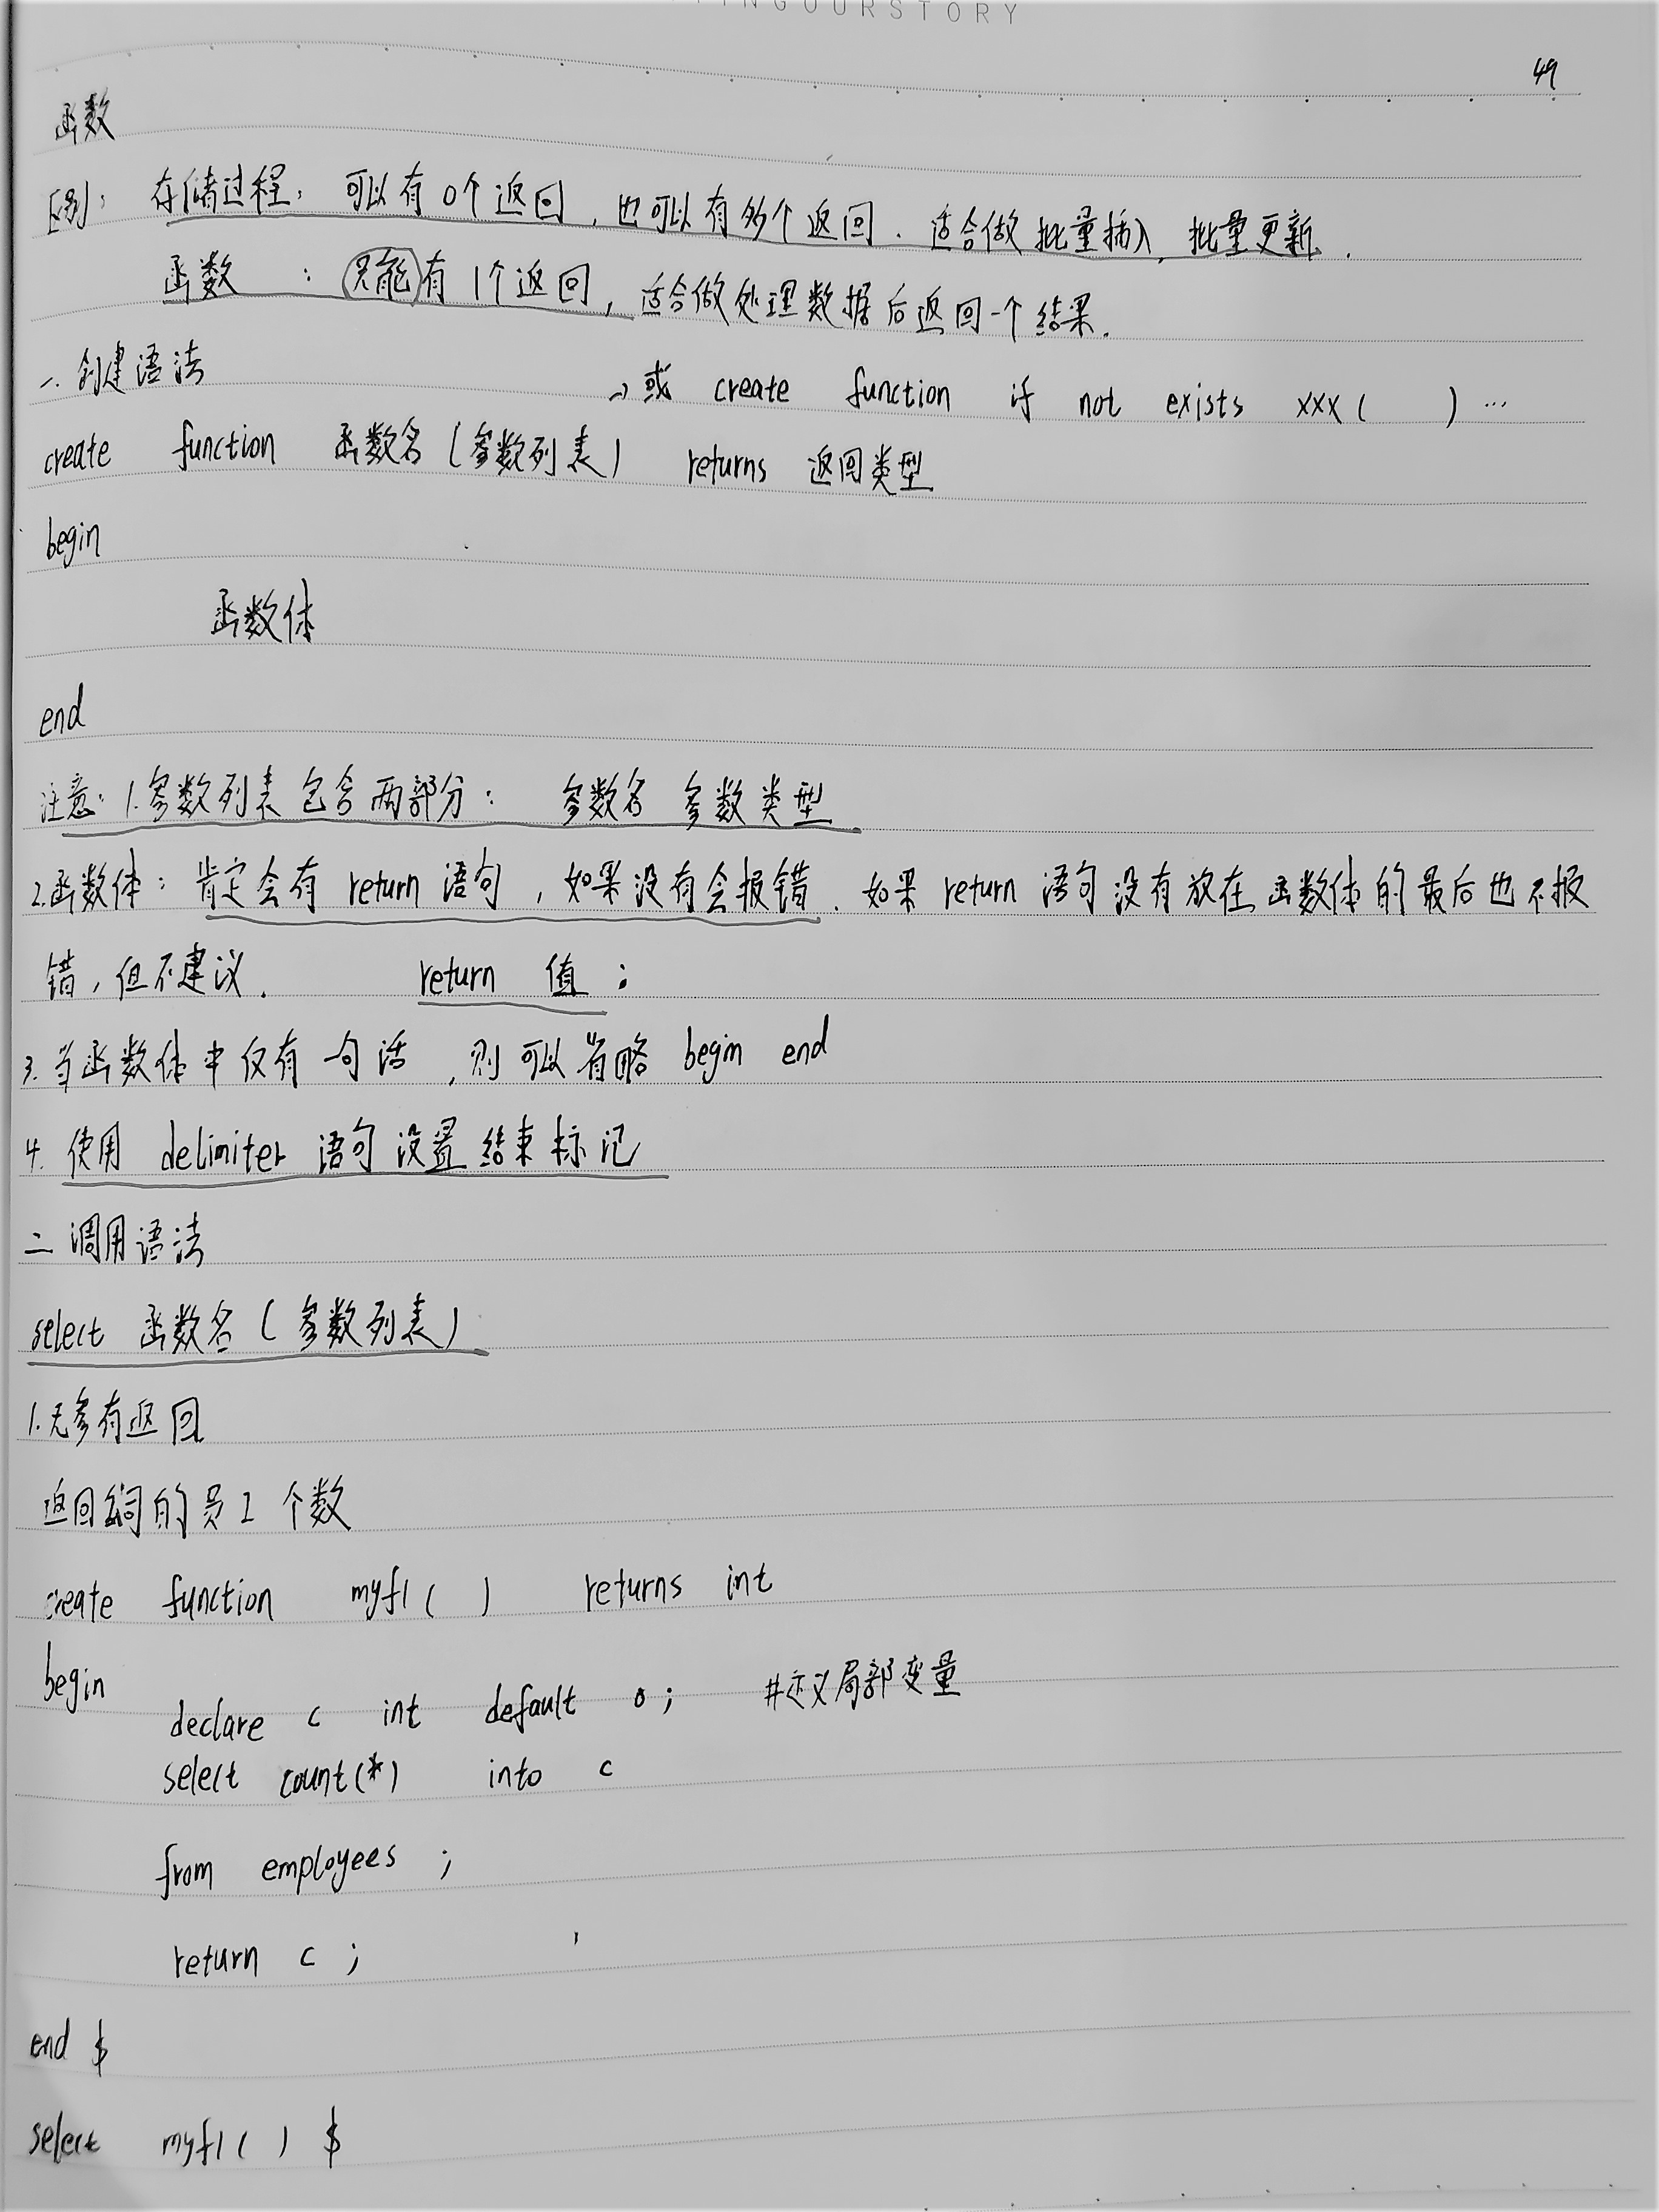 INGOURSTORY
49
函数
区别：存储过程：可以有0个返回，也可以有多个返回．适合做批量插入，批量更新．
函数：只能有1个返回，适合做处理数据后返回一个结果．
一.创建语法
→或 create function if not exists xxx( ) …
create function 函数名(参数列表) returns 返回类型
begin
函数体
end
注意：1.参数列表包含两部分：参数名 参数类型
2.函数体：肯定会有return语句，如果没有会报错．如果return语句没有放在函数体的最后也不报
错，但不建议． return 值；
3.当函数体中仅有一句话，则可以省略 begin end
4.使用 delimiter 语句设置结束标记
二 调用语法
select 函数名(参数列表)
1.无参有返回
返回公司的员工个数
create function myf1( ) returns int
begin
declare c int default 0; #定义局部变量
select count(*) into c
from employees ;
return c ;
end $
select myf1( ) $